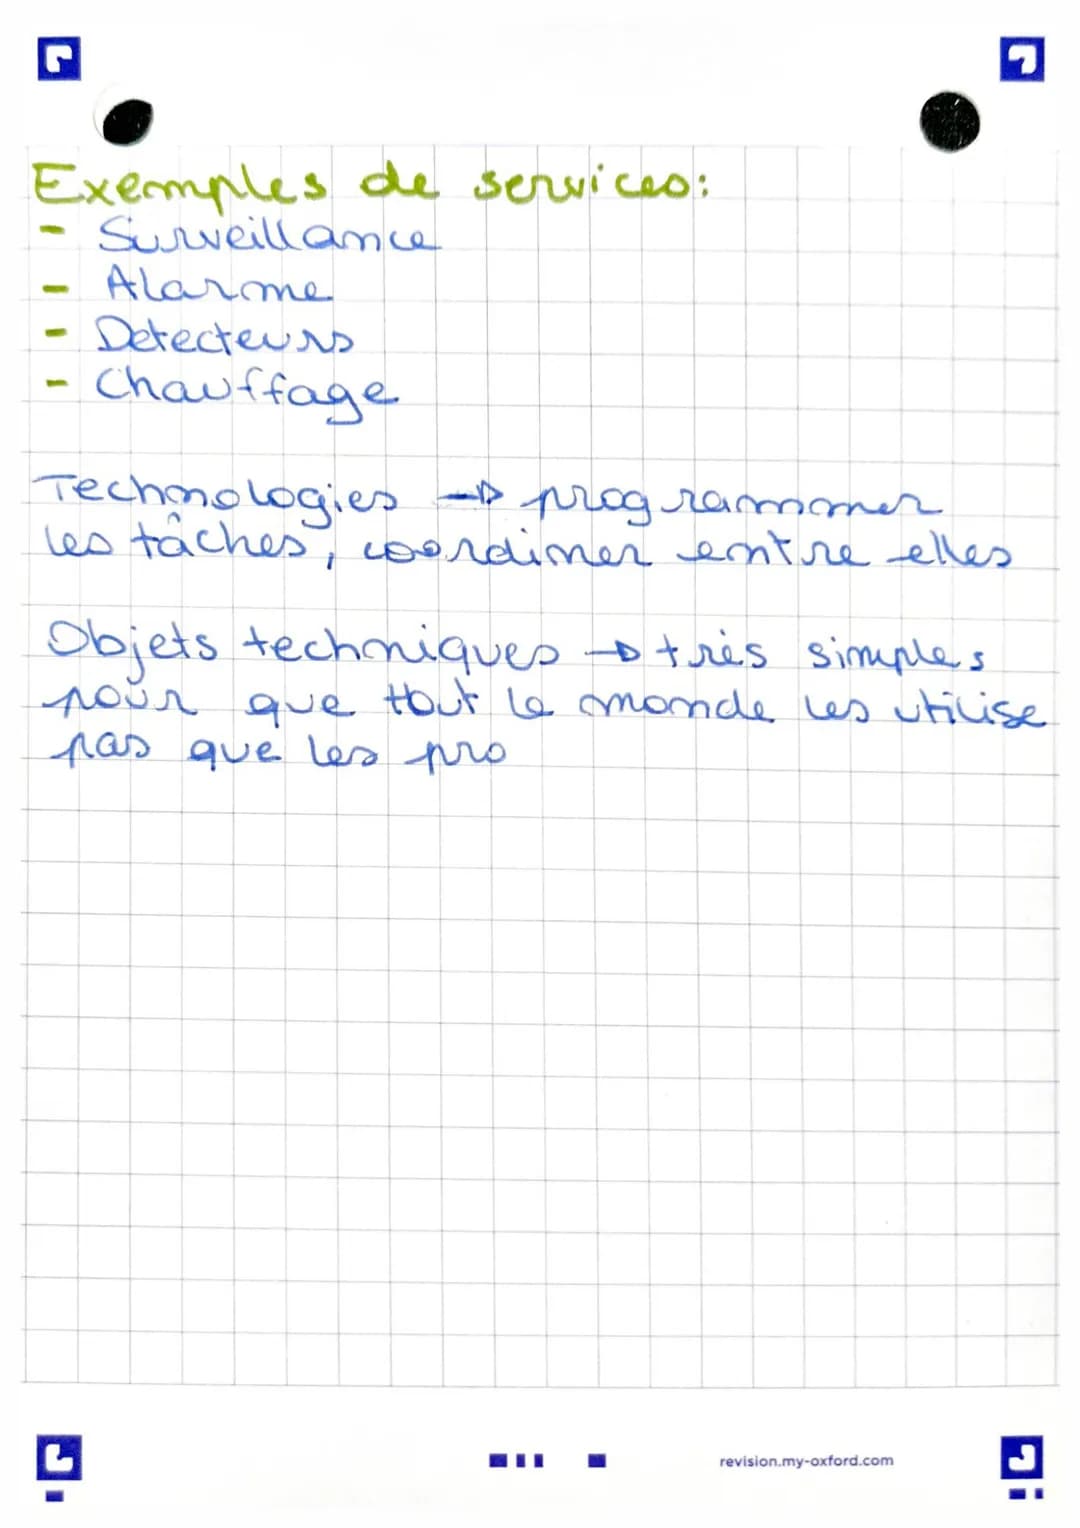 Exemples de services:
- Surveillance
- Alarme
- Detecteurs
- Chauffage
Technologies → programmer
les tâches, coordiner entre elles
Objets techniques → très simples
pour que tout le monde les utilise
pas que les pro
revision.my-oxford.com